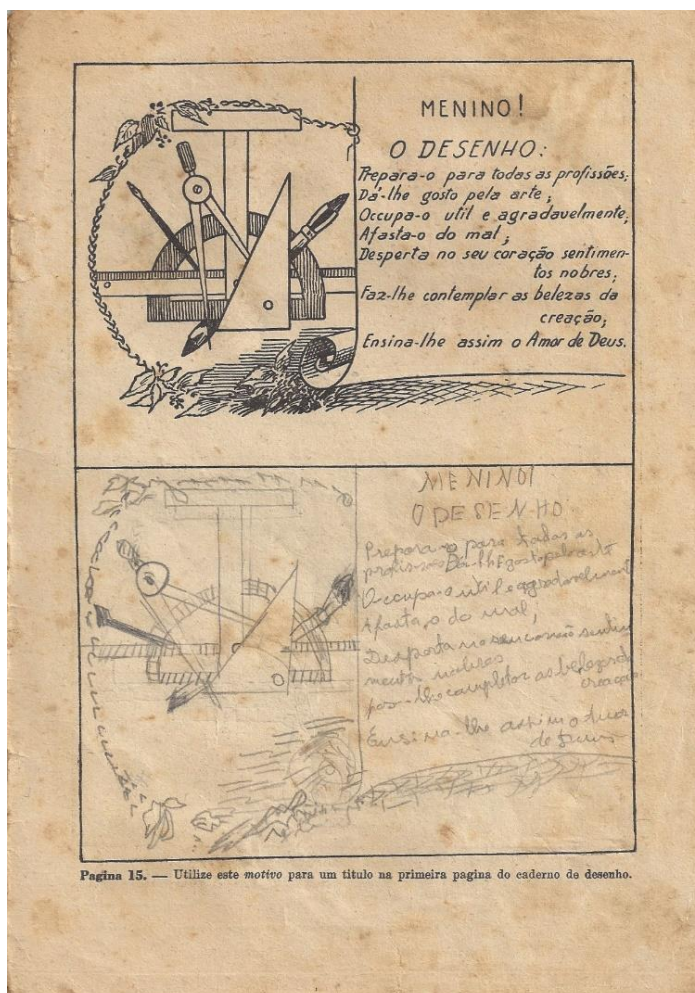 MENINO!
O DESENHO:
Prepara-o para todas as profissões;
Dá-lhe gosto pela arte;
Occupa-o util e agradavelmente;
Afasta-o do mal;
Desperta no seu coração sentimen-
tos nobres;
Faz-lhe contemplar as belezas da
creação;
Ensina-lhe assim o Amor de Deus.
MENINO!
O DESENHO
Prepara-o para todas as
Da-lhe gosto pela arte
Occupa-o util e agradavelment
Afasta-o do mal;
Desperta no seu coração sentim
as belezas da
creação
Ensina-lhe assim o
Pagina 15. — Utilize este motivo para um titulo na primeira pagina do caderno de desenho.